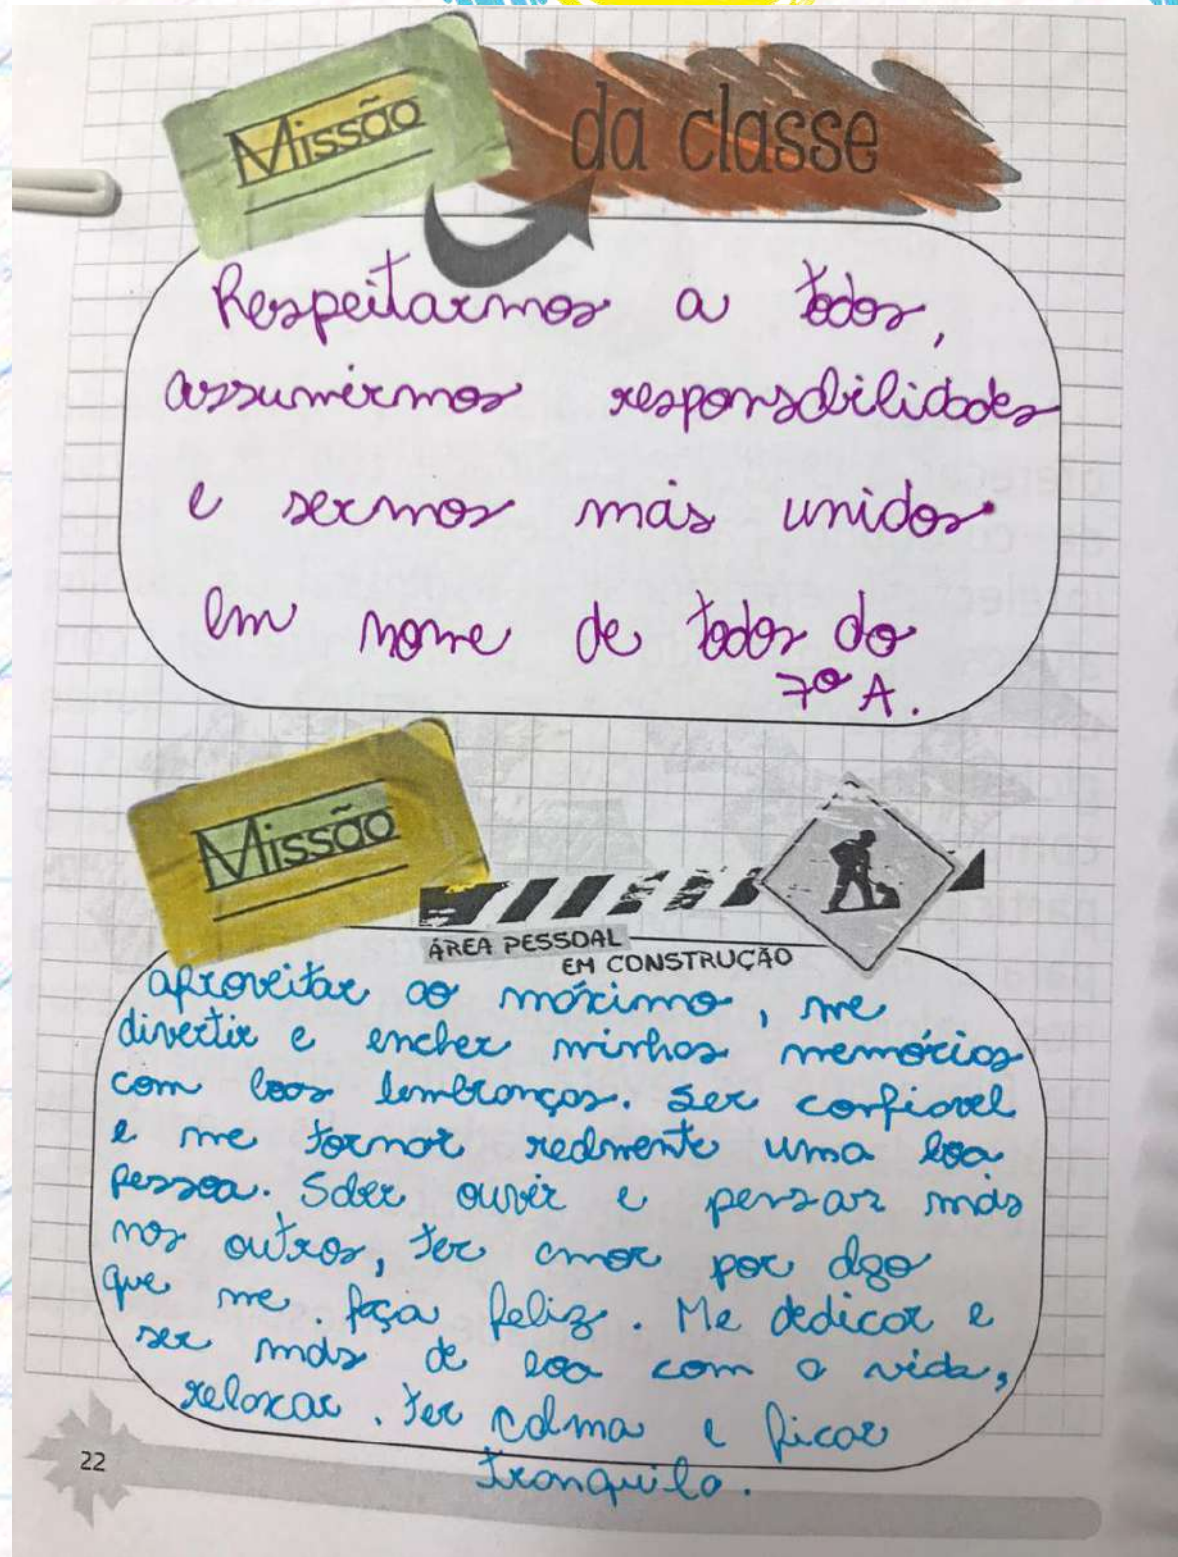 Missão da classe
Respeitarmos a todos,
assumirmos responsabilidades
e sermos mais unidos
em nome de todos do
7º A.
Missão
ÁREA PESSOAL
EM CONSTRUÇÃO
aproveitar ao máximo, me
divertir e encher minhas memórias
com boas lembranças. Ser confiavel
e me tornar realmente uma boa
pessoa. Saber ouvir e pensar mais
nos outros, ter amor por algo
que me faça feliz. Me dedicar e
ser mais de boa com a vida,
relaxar, ter calma e ficar
tranquila.
22